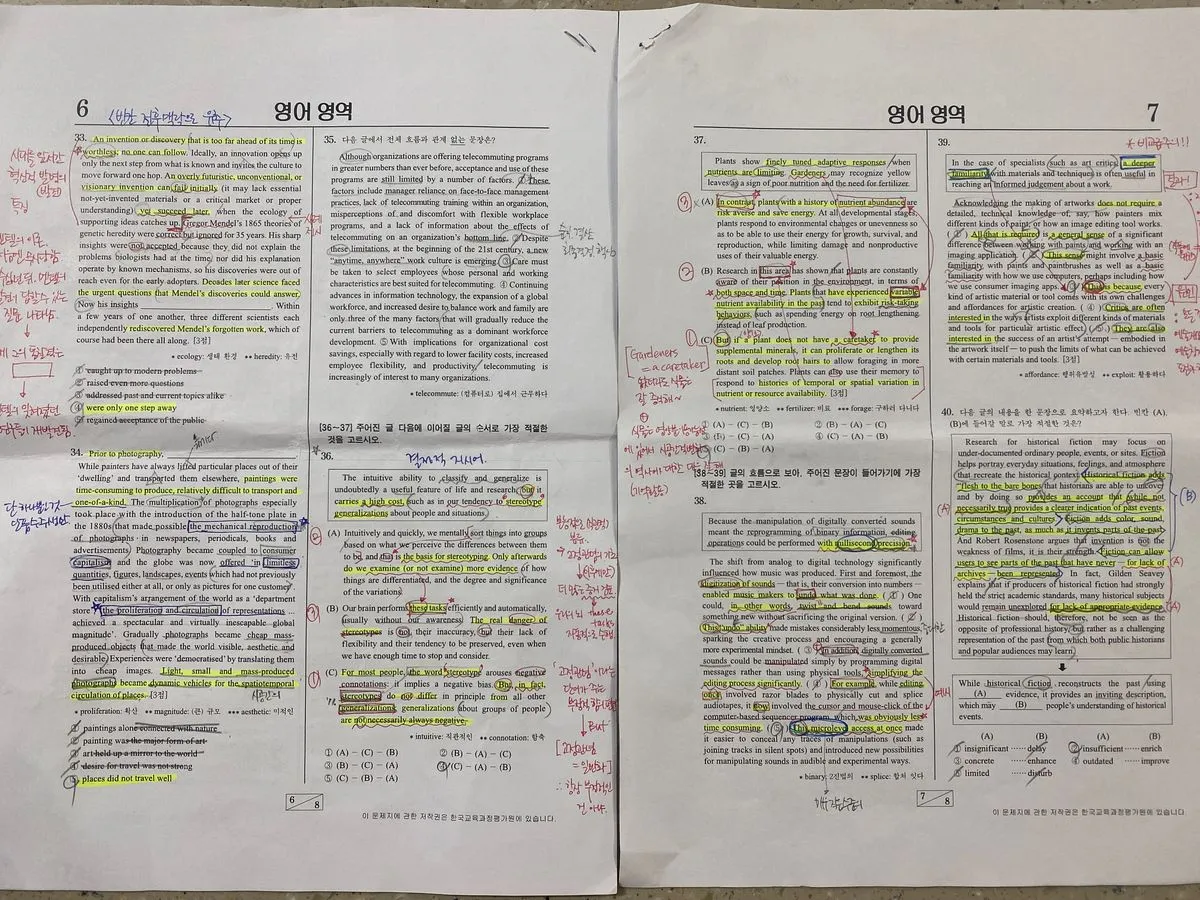 6
영어 영역
33. An invention or discovery that is too far ahead of its time is
worthless; no one can follow. Ideally, an innovation opens up
only the next step from what is known and invites the culture to
move forward one hop. An overly futuristic, unconventional, or
visionary invention can fail initially (it may lack essential
not-yet-invented materials or a critical market or proper
understanding) yet succeed later, when the ecology of
supporting ideas catches up. Gregor Mendel's 1865 theories of
genetic heredity were correct but ignored for 35 years. His sharp
insights were not accepted because they did not explain the
problems biologists had at the time, nor did his explanation
operate by known mechanisms, so his discoveries were out of
reach even for the early adopters. Decades later science faced
the urgent questions that Mendel's discoveries could answer.
Now his insights
a few years of one another, three different scientists each
independently rediscovered Mendel's forgotten work, which of
course had been there all along. [3점]
* ecology: 생태 환경 ** heredity: 유전
① caught up to modern problems
② raised even more questions
③ addressed past and current topics alike
④ were only one step away
⑤ regained acceptance of the public
34. Prior to photography,
While painters have always lifted particular places out of their
'dwelling' and transported them elsewhere, paintings were
time-consuming to produce, relatively difficult to transport and
one-of-a-kind. The multiplication of photographs especially
took place with the introduction of the half-tone plate in
the 1880s that made possible the mechanical reproduction
of photographs in newspapers, periodicals, books and
advertisements. Photography became coupled to consumer
capitalism and the globe was now offered 'in limitless
quantities, figures, landscapes, events which had not previously
been utilised either at all, or only as pictures for one customer'.
With capitalism's arrangement of the world as a 'department
store', 'the proliferation and circulation of representations ...
achieved a spectacular and virtually inescapable global
magnitude'. Gradually photographs became cheap mass-
produced objects that made the world visible, aesthetic and
desirable. Experiences were 'democratised' by translating them
into cheap images. Light, small and mass-produced
photographs became dynamic vehicles for the spatiotemporal
circulation of places. [3점]
* proliferation: 확산 ** magnitude: (큰) 규모 *** aesthetic: 미적인
① paintings alone connected with nature
② painting was the major form of art
③ art held up a mirror to the world
④ desire for travel was not strong
⑤ places did not travel well
35. 다음 글에서 전체 흐름과 관계 없는 문장은?
Although organizations are offering telecommuting programs
in greater numbers than ever before, acceptance and use of these
programs are still limited by a number of factors. ① These
factors include manager reliance on face-to-face management
practices, lack of telecommuting training within an organization,
misperceptions of and discomfort with flexible workplace
programs, and a lack of information about the effects of
telecommuting on an organization's bottom line. ② Despite
these limitations, at the beginning of the 21st century, a new
"anytime, anywhere" work culture is emerging. ③ Care must
be taken to select employees whose personal and working
characteristics are best suited for telecommuting. ④ Continuing
advances in information technology, the expansion of a global
workforce, and increased desire to balance work and family are
only three of the many factors that will gradually reduce the
current barriers to telecommuting as a dominant workforce
development. ⑤ With implications for organizational cost
savings, especially with regard to lower facility costs, increased
employee flexibility, and productivity, telecommuting is
increasingly of interest to many organizations.
* telecommute: (컴퓨터로) 집에서 근무하다
[36~37] 주어진 글 다음에 이어질 글의 순서로 가장 적절한
것을 고르시오.
36.
The intuitive ability to classify and generalize is
undoubtedly a useful feature of life and research, but it
carries a high cost, such as in our tendency to stereotype
generalizations about people and situations.
(A) Intuitively and quickly, we mentally sort things into groups
based on what we perceive the differences between them
to be, and that is the basis for stereotyping. Only afterwards
do we examine (or not examine) more evidence of how
things are differentiated, and the degree and significance
of the variations.
(B) Our brain performs these tasks efficiently and automatically,
usually without our awareness. The real danger of
stereotypes is not their inaccuracy, but their lack of
flexibility and their tendency to be preserved, even when
we have enough time to stop and consider.
(C) For most people, the word stereotype arouses negative
connotations: it implies a negative bias. But, in fact,
stereotypes do not differ in principle from all other
generalizations; generalizations about groups of people
are not necessarily always negative.
* intuitive: 직관적인 ** connotation: 함축
① (A) - (C) - (B) ② (B) - (A) - (C)
③ (B) - (C) - (A) ④ (C) - (A) - (B)
⑤ (C) - (B) - (A)
6 8
이 문제지에 관한 저작권은 한국교육과정평가원에 있습니다.
영어 영역
7
37.
Plants show finely tuned adaptive responses when
nutrients are limiting. Gardeners may recognize yellow
leaves as a sign of poor nutrition and the need for fertilizer.
(A) In contrast, plants with a history of nutrient abundance are
risk averse and save energy. At all developmental stages,
plants respond to environmental changes or unevenness so
as to be able to use their energy for growth, survival, and
reproduction, while limiting damage and nonproductive
uses of their valuable energy.
(B) Research in this area has shown that plants are constantly
aware of their position in the environment, in terms of
both space and time. Plants that have experienced variable
nutrient availability in the past tend to exhibit risk-taking
behaviors, such as spending energy on root lengthening
instead of leaf production.
(C) But if a plant does not have a caretaker to provide
supplemental minerals, it can proliferate or lengthen its
roots and develop root hairs to allow foraging in more
distant soil patches. Plants can also use their memory to
respond to histories of temporal or spatial variation in
nutrient or resource availability. [3점]
* nutrient: 영양소 ** fertilizer: 비료 *** forage: 구하러 다니다
① (A) - (C) - (B) ② (B) - (A) - (C)
③ (B) - (C) - (A) ④ (C) - (A) - (B)
[38~39] 글의 흐름으로 보아, 주어진 문장이 들어가기에 가장
적절한 곳을 고르시오.
38.
Because the manipulation of digitally converted sounds
meant the reprogramming of binary information, editing
operations could be performed with millisecond precision.
The shift from analog to digital technology significantly
influenced how music was produced. First and foremost, the
digitization of sounds — that is, their conversion into numbers —
enabled music makers to undo what was done. ( ① ) One
could, in other words, twist and bend sounds toward
something new without sacrificing the original version. ( ② )
This "undo" ability made mistakes considerably less momentous,
sparking the creative process and encouraging a generally
more experimental mindset. ( ③ ) In addition, digitally converted
sounds could be manipulated simply by programming digital
messages rather than using physical tools, simplifying the
editing process significantly. ( ④ ) For example, while editing
once involved razor blades to physically cut and splice
audiotapes, it now involved the cursor and mouse-click of the
computer-based sequencer program, which was obviously less
time consuming. ( ⑤ ) This microlevel access at once made
it easier to conceal any traces of manipulations (such as
joining tracks in silent spots) and introduced new possibilities
for manipulating sounds in audible and experimental ways.
* binary: 2진법의 ** splice: 합쳐 잇다
39.
In the case of specialists such as art critics, a deeper
familiarity with materials and techniques is often useful in
reaching an informed judgement about a work.
Acknowledging the making of artworks does not require a
detailed, technical knowledge of, say, how painters mix
different kinds of paint, or how an image editing tool works.
( ① ) All that is required is a general sense of a significant
difference between working with paints and working with an
imaging application. ( ② ) This sense might involve a basic
familiarity with paints and paintbrushes as well as a basic
familiarity with how we use computers, perhaps including how
we use consumer imaging apps. ( ③ ) This is because every
kind of artistic material or tool comes with its own challenges
and affordances for artistic creation. ( ④ ) Critics are often
interested in the ways artists exploit different kinds of materials
and tools for particular artistic effect. ( ⑤ ) They are also
interested in the success of an artist's attempt — embodied in
the artwork itself — to push the limits of what can be achieved
with certain materials and tools. [3점]
* affordance: 행위유발성 ** exploit: 활용하다
40. 다음 글의 내용을 한 문장으로 요약하고자 한다. 빈칸 (A),
(B)에 들어갈 말로 가장 적절한 것은?
Research for historical fiction may focus on
under-documented ordinary people, events, or sites. Fiction
helps portray everyday situations, feelings, and atmosphere
that recreate the historical context. Historical fiction adds
"flesh to the bare bones that historians are able to uncover
and by doing so provides an account that while not
necessarily true provides a clearer indication of past events,
circumstances and cultures." Fiction adds color, sound,
drama to the past, as much as it invents parts of the past.
And Robert Rosenstone argues that invention is not the
weakness of films, it is their strength. Fiction can allow
users to see parts of the past that have never — for lack of
archives — been represented. In fact, Gilden Seavey
explains that if producers of historical fiction had strongly
held the strict academic standards, many historical subjects
would remain unexplored for lack of appropriate evidence.
Historical fiction should, therefore, not be seen as the
opposite of professional history, but rather as a challenging
representation of the past from which both public historians
and popular audiences may learn.
While historical fiction reconstructs the past using
(A) evidence, it provides an inviting description,
which may (B) people's understanding of historical
events.
(A) (B) (A) (B)
① insignificant ······ delay ② insufficient ······ enrich
③ concrete ······ enhance ④ outdated ······ improve
⑤ limited ······ disturb
7 8
이 문제지에 관한 저작권은 한국교육과정평가원에 있습니다.